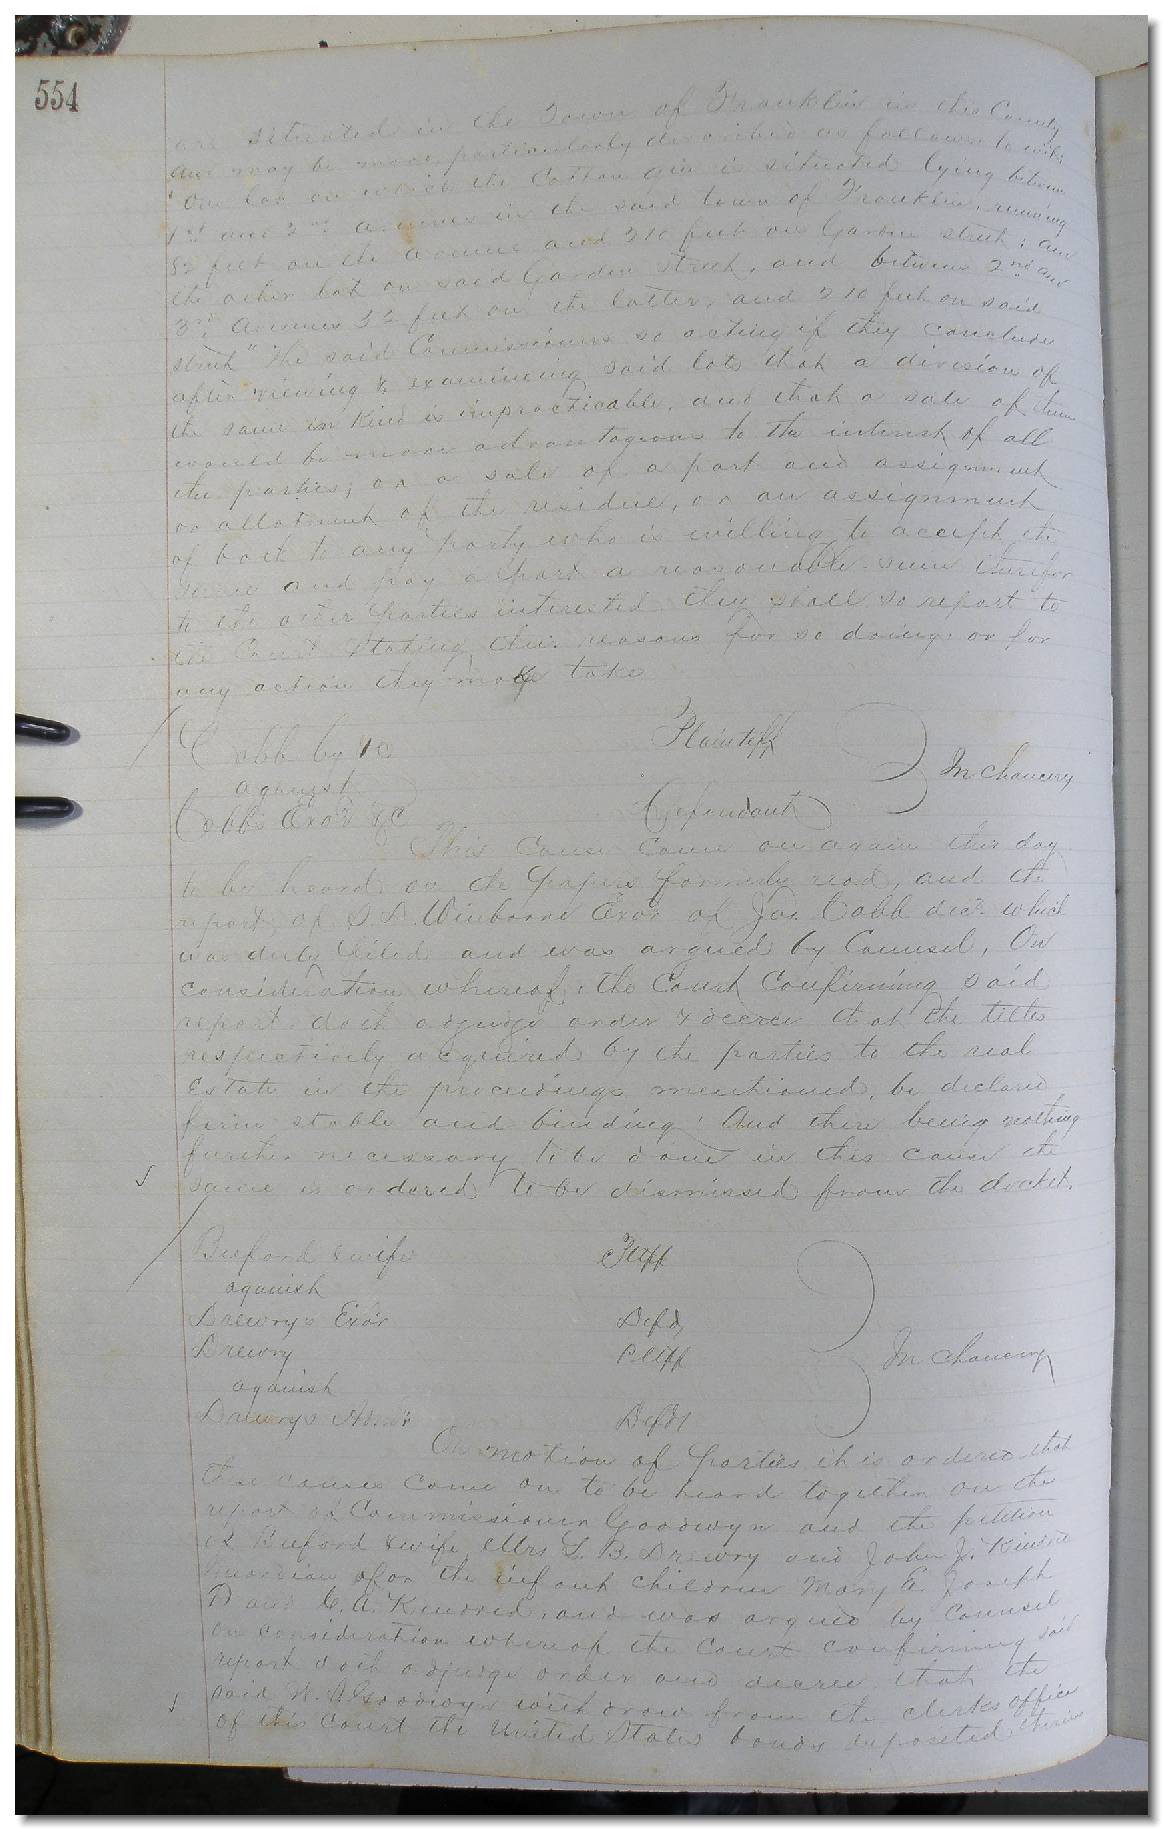 554
are situated in the Town of Franklin in this County
and may be more particularly described as follows to wit:
"One lot on which the Cotton gin is situated lying between
1st and 2nd Avenues in the said town of Franklin, running
82 feet on the Avenue and 210 feet on Garden street; and
the other lot on said Garden Street, and between 2nd and
3rd Avenues 32 feet on the latter, and 210 feet on said
street" The said Commissioners so acting if they conclude
after viewing & examining said lots that a division of
the same in Kind is impracticable, and that a sale of them
would be more advantageous to the interest of all
the parties; or a sale of a part and assignment
or allotment of the residue, or an assignment
of both to any party who is willing to accept the
same and pay a reasonable sum therefor
to the other parties interested, they shall so report to
the Court stating their reasons for so doing, or for
any action they may take
Cobb by &c Plaintiff
against In Chancery
Cobb's Exor &c Defendant
This Cause came on again this day
to be heard on the papers formerly read, and the
report of S. D. Winborne Exor of Jas. Cobb decd which
was duly filed and was argued by Counsel, On
consideration whereof, the Court Confirming said
report doth adjudge order & decree that the titles
respectively acquired by the parties to the real
Estate in the proceedings mentioned, be declared
firm stable and binding. And there being nothing
further necessary to be done in this cause the
same is ordered to be dismissed from the docket.
Buford & wife Pltff
against
Drewry's Exor Defds
Drewry Pltff In Chancery
against
Drewrys Admr Defds
On motion of parties it is ordered that
these causes come on to be heard together on the
report of Commissioner Goodwyn and the petition
of Buford & wife, Mrs L. B. Drewry and John J. Kindred
guardian of the infant children Mary E. Joseph
D and C. A. Kindred, and was argued by Counsel
on consideration whereof the Court confirming said
report doth adjudge order and decree that the
said W. S. Goodwyn withdraw from the clerks office
of this Court the United States bonds deposited therein